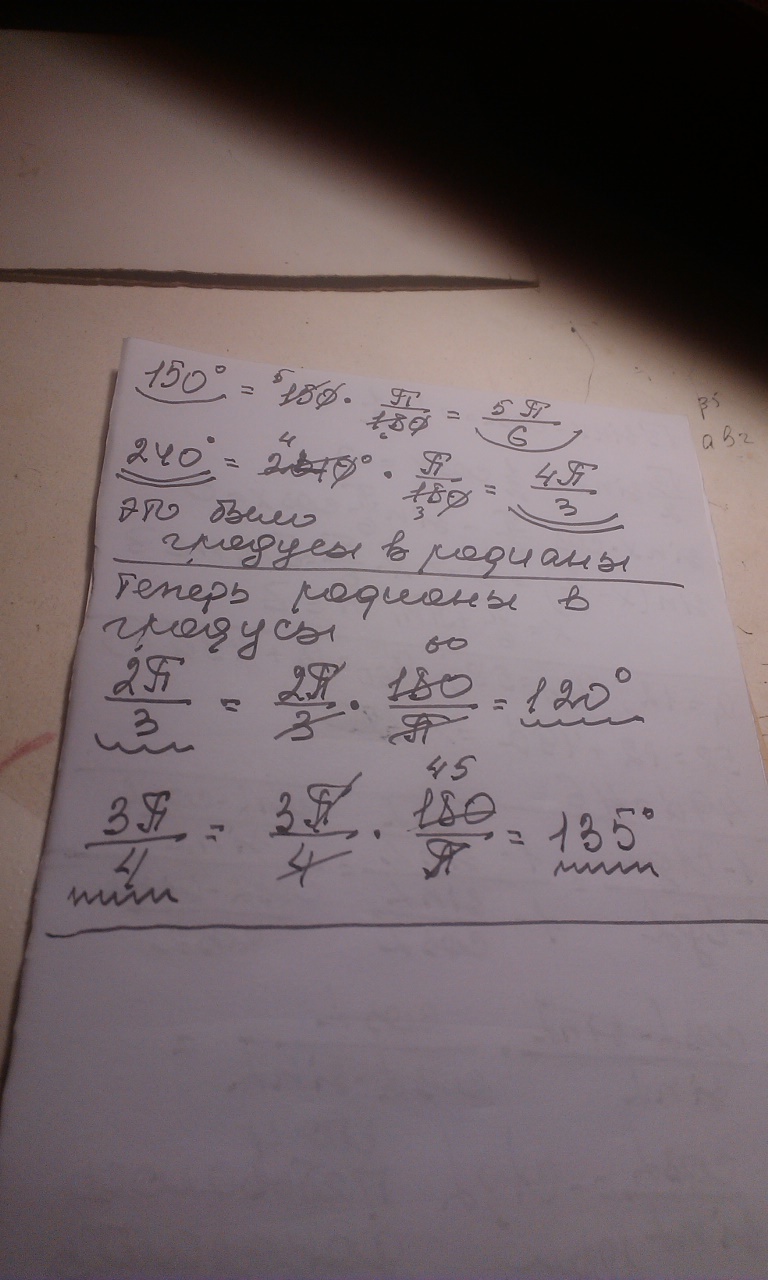 150° = 150 · π/180 = 5π/6
240° = 240° · π/180 = 4π/3
это было
градусы в радианы
Теперь радианы в
градусы
2π/3 = 2π/3 · 180/π = 120°
3π/4 = 3π/4 · 180/π = 135°